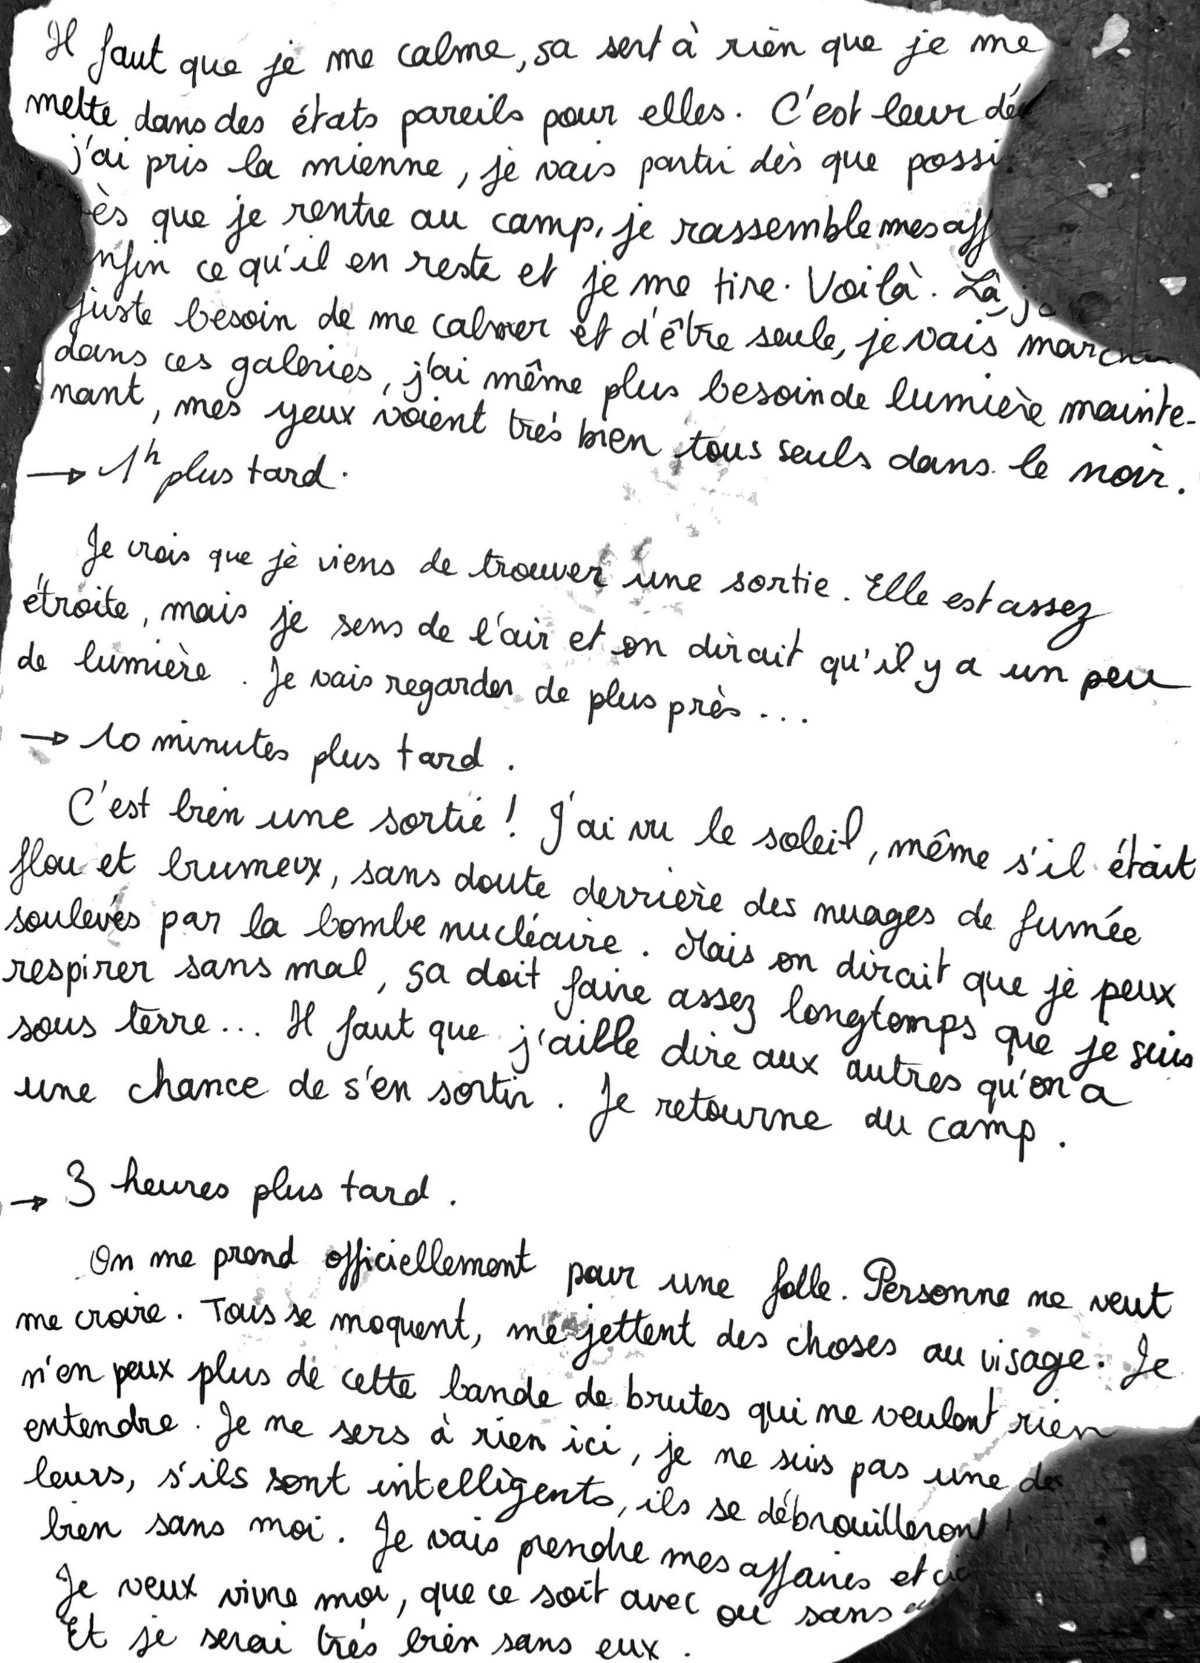 Il faut que je me calme, sa sert à rien que je me
mette dans des états pareils pour elles. C'est leur dé
j'ai pris la mienne, je vais partir dès que possi
ès que je rentre au camp, je rassemble mes aff
nfin ce qu'il en reste et je me tire. Voilà. Là, j
juste besoin de me calmer et d'être seule, je vais march
dans ces galeries, j'ai même plus besoin de lumière mainte-
nant, mes yeux voient très bien tous seuls dans le noir.
→ 1h plus tard.
Je crois que je viens de trouver une sortie. Elle est assez
étroite, mais je sens de l'air et on dirait qu'il y a un peu
de lumière. Je vais regarder de plus près...
→ 10 minutes plus tard.
C'est bien une sortie! J'ai vu le soleil, même s'il était
flou et brumeux, sans doute derrière des nuages de fumée
soulevés par la bombe nucléaire. Mais on dirait que je peux
respirer sans mal, sa doit faire assez longtemps que je suis
sous terre... Il faut que j'aille dire aux autres qu'on a
une chance de s'en sortir. Je retourne au camp.
→ 3 heures plus tard.
On me prend officiellement pour une folle. Personne ne veut
me croire. Tous se moquent, me jettent des choses au visage. Je
n'en peux plus de cette bande de brutes qui ne veulent rien
entendre. Je ne sers à rien ici, je ne suis pas une des
leurs, s'ils sont intelligents, ils se débrouilleront
bien sans moi. Je vais prendre mes affaires et
Je veux vivre moi, que ce soit avec ou sans
Et je serai très bien sans eux.